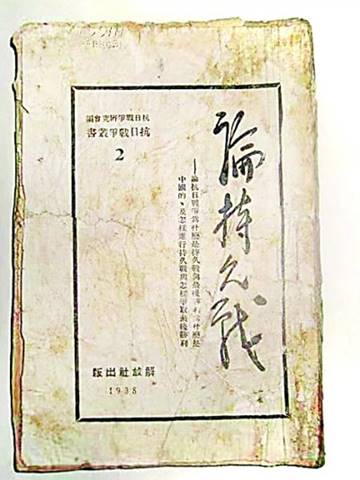 論持久戰
——論抗日戰爭爲什麽是持久戰與最後勝利爲什麽是
中國的、及怎樣進行持久戰與怎樣爭取最後勝利
抗日戰爭研究會編
抗日戰爭叢書
2
解放社出版
1938